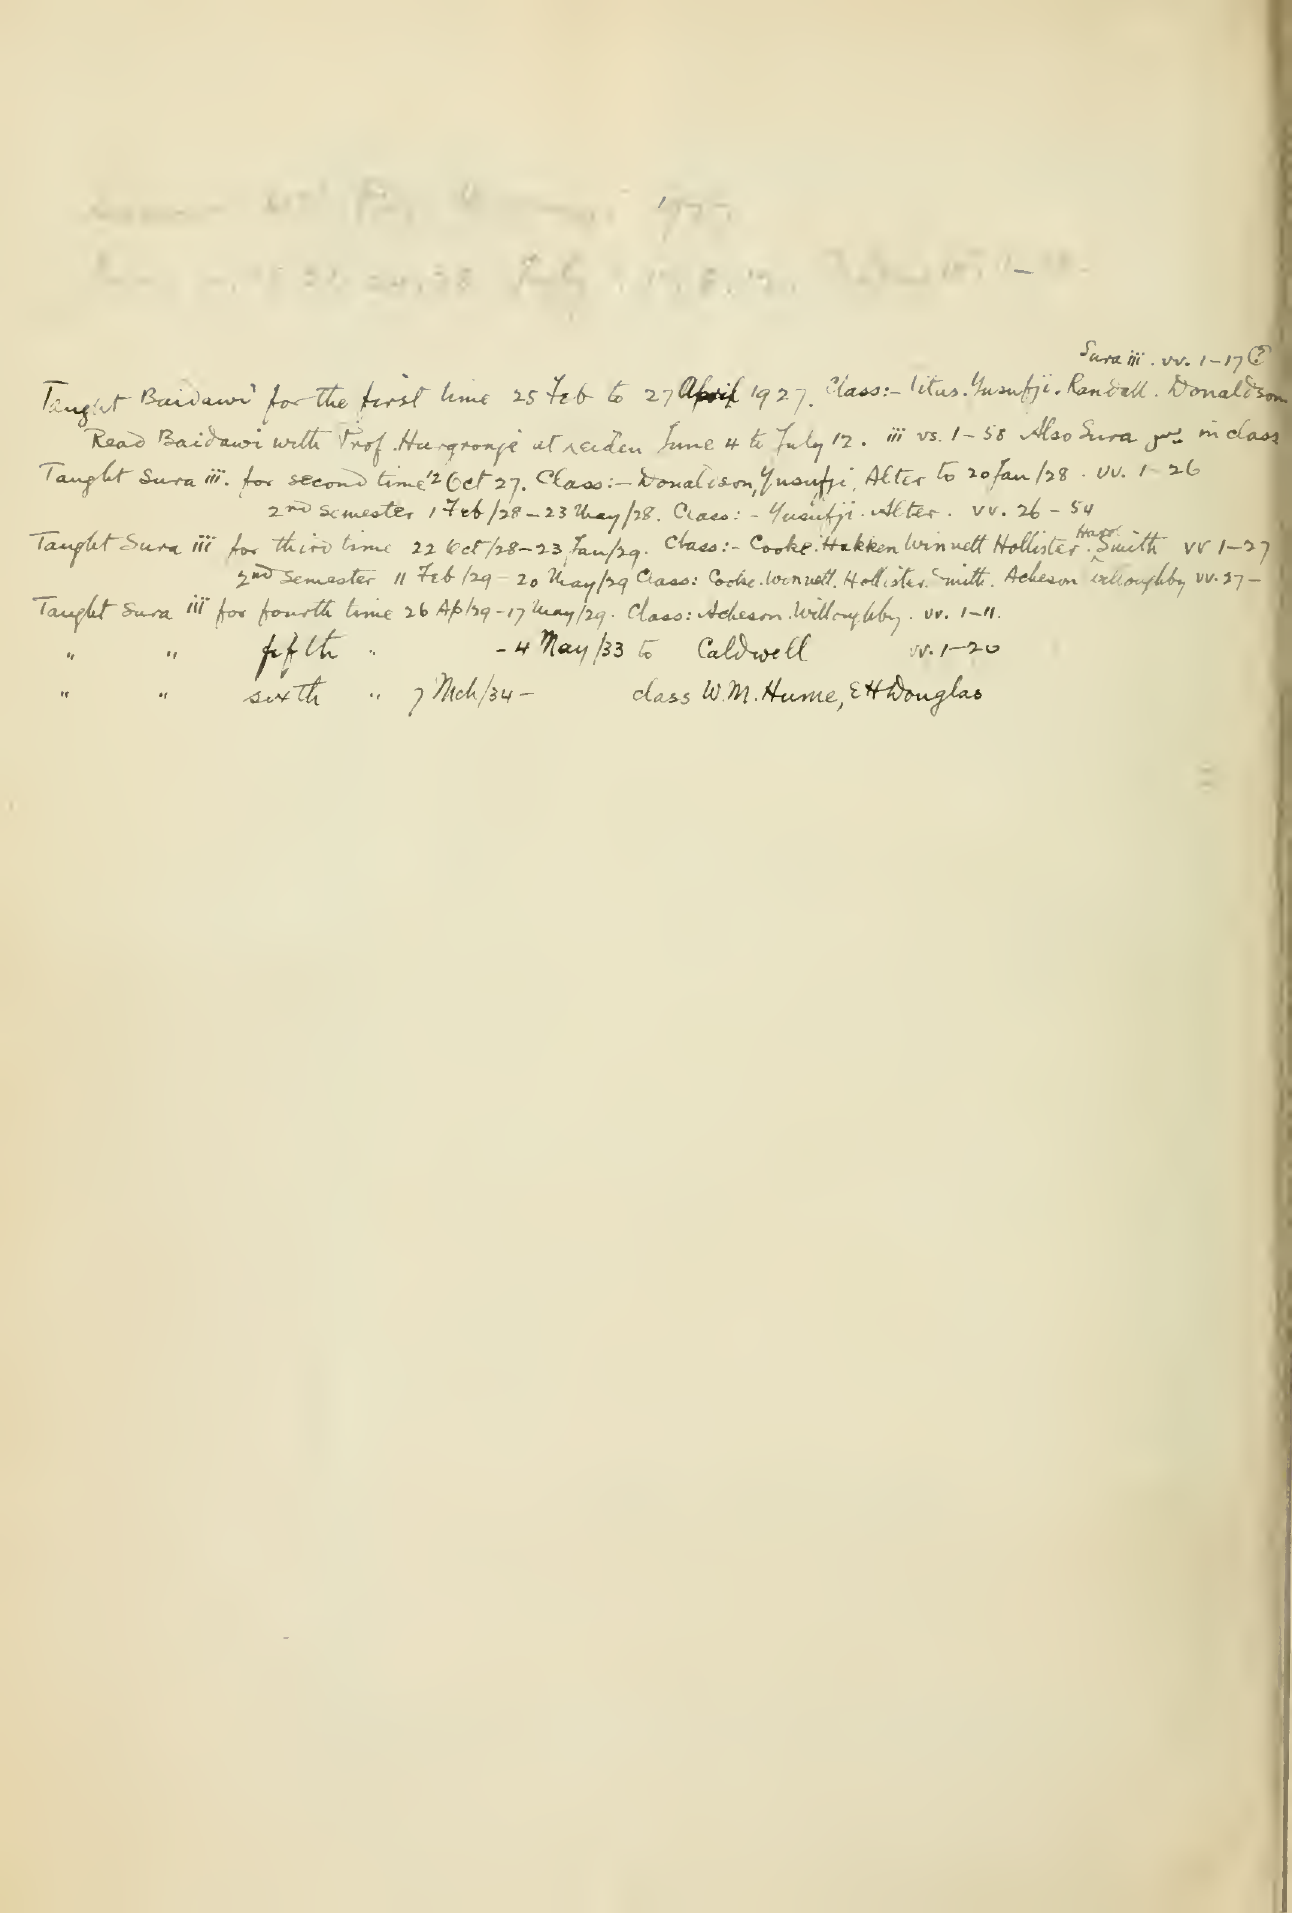 Sura iii. vv. 1-17(?
Taught Baidawi for the first time 25 Feb to 27 April 1927. Class:- Titus. Yusufji. Randall. Donaldson
Read Baidawi with Prof. Hurgronje at Leiden June 4 to July 12. iii vs. 1-58 Also Sura in class
Taught Sura iii. for second time 12 Oct 27. Class:- Donaldson, Yusufji, Alter to 20 Jan/28. vv. 1-26
2nd semester 1 Feb/28-23 May/28. Class:- Yusufji. Alter. vv. 26-54
Taught Sura iii for third time 22 Oct/28-23 Jan/29. Class:- Cooke. Hakken Winnett Hollister. Smith vv 1-27
2nd Semester 11 Feb/29-20 May/29 Class: Cooke. Winnett. Hollister. Smith. Acheson Willoughby vv. 27-
Taught Sura iii for fourth time 26 Ap/29-17 May/29. Class: Acheson. Willoughby. vv. 1-11.
" " fifth " - 4 May/33 to Caldwell vv. 1-20
" " sixth " 7 Mch/34- class W.M. Hume, E H Douglas